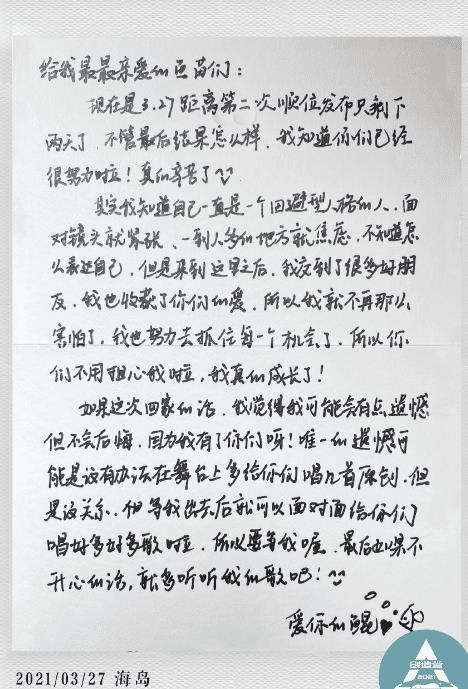 给我最最亲爱的豆苗们:
现在是3.27距离第二次顺位发布只剩下
两天了,不管最后结果怎么样,我知道你们已经
很努力啦!真的辛苦了
其实我知道自己一直是一个回避型人格的人,面
对镜头就紧张、一到人多的地方就焦虑,不知道怎
么表达自己,但是来到这里之后,我交到了很多好朋
友,我也收获了你们的爱,所以我就不再那么
害怕了,我也努力去抓住每一个机会了,所以你
们不用担心我啦,我真的成长了!
如果这次回家的话,我觉得我可能会有点遗憾
但不会后悔,因为我有了你们呀!唯一的遗憾可
能是没有办法在舞台上多给你们唱几首原创,但
是没关系,但等我出去后就可以面对面给你们
唱好多好多歌啦,所以要等我喔,最后如果不
开心的话,就多听听我的歌吧!
爱你的鲲
2021/03/27 海岛
创造营
2021